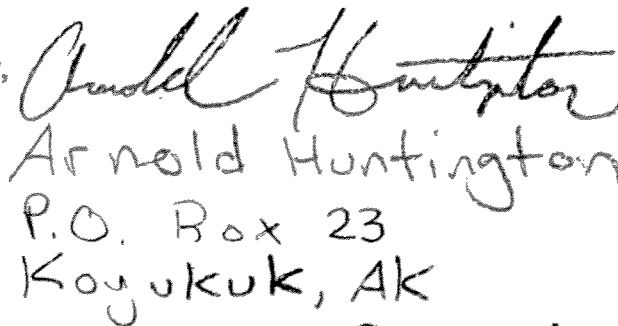 Arnold Huntington
Arnold Huntington
P.O. Box 23
Koyukuk, AK